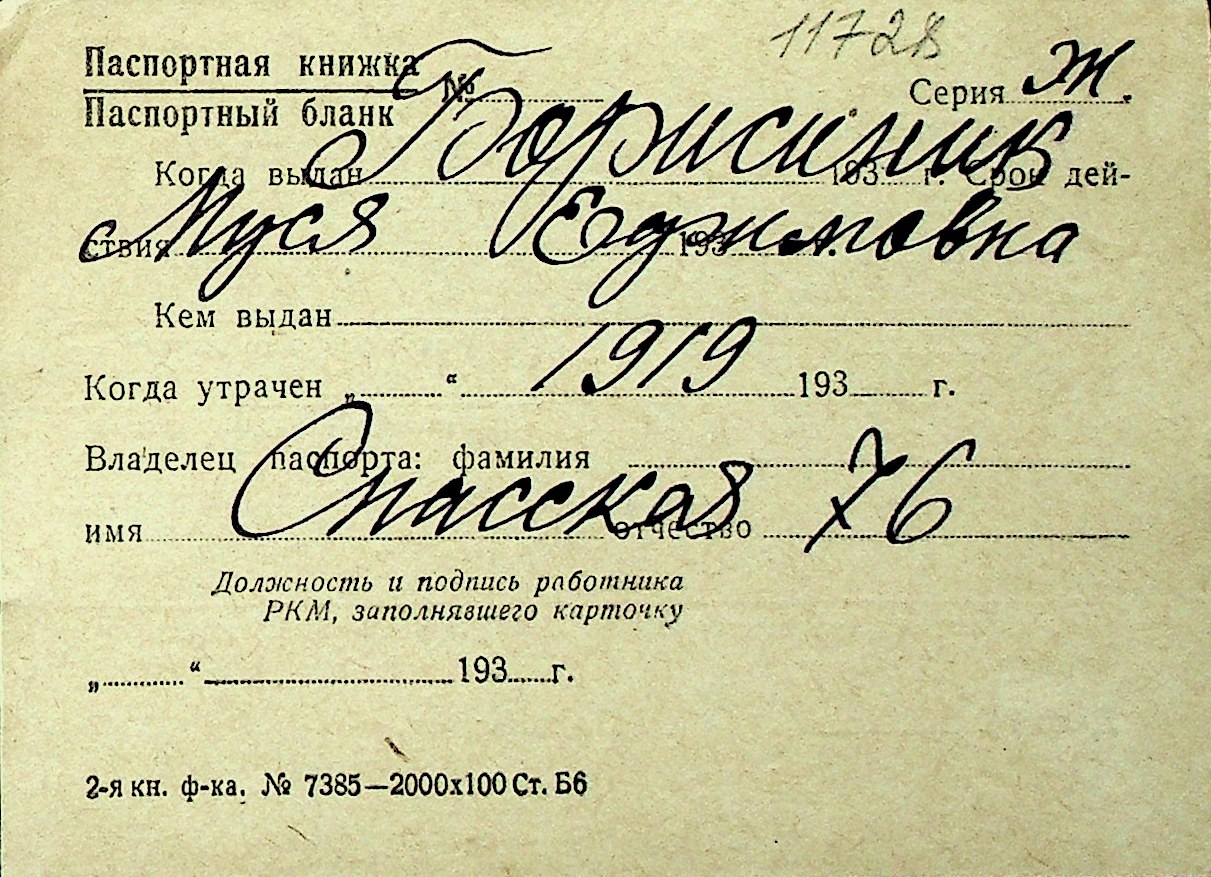 11728
Паспортная книжка
Паспортный бланк № Серия Ж.
Борисиник
Когда выдан 193 г. Срок дей-
ствия 193
Муся Ефимовна
Кем выдан
1919
Когда утрачен „ “ 193 г.
Владелец паспорта: фамилия
Спасская 76
имя отчество
Должность и подпись работника
РКМ, заполнявшего карточку
„ “ 193 г.
2-я кн. ф-ка. № 7385—2000х100 Ст. Б6